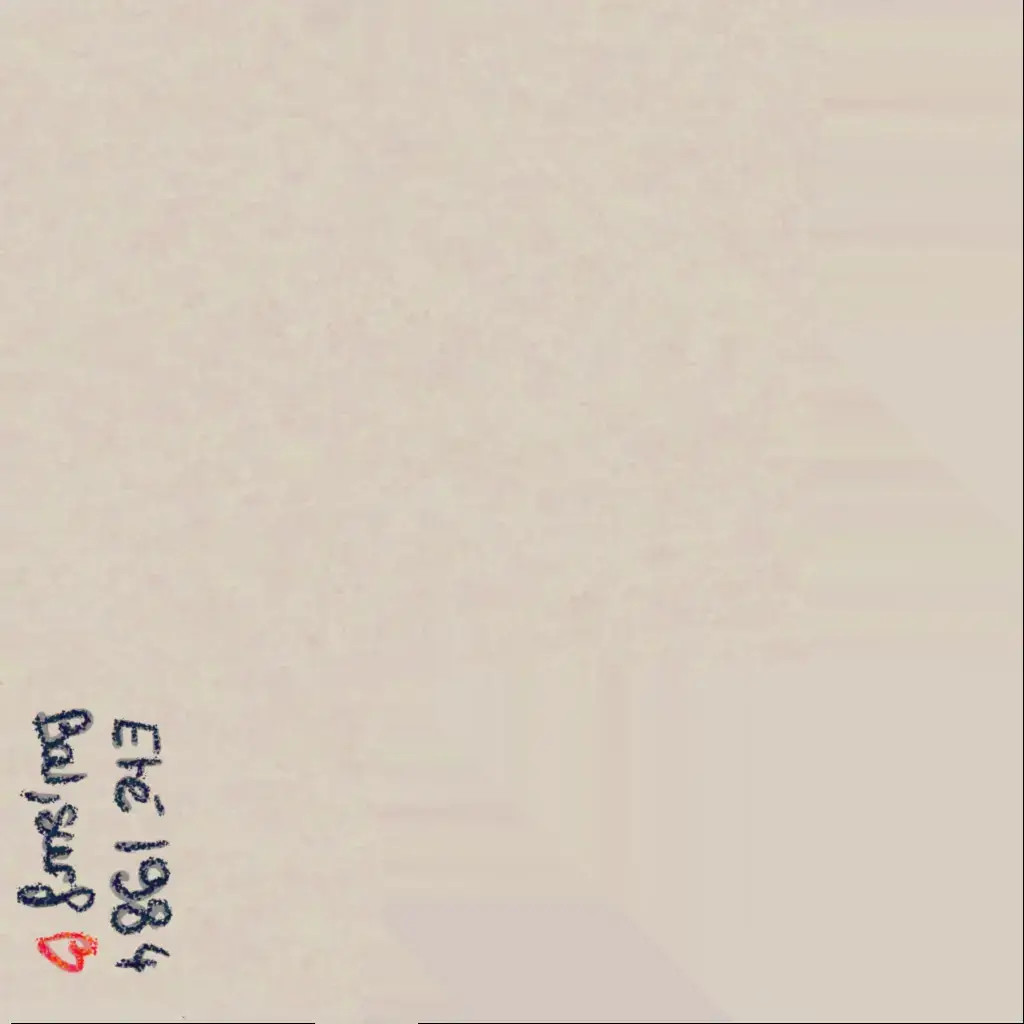 Eté 1984
Bali, surf